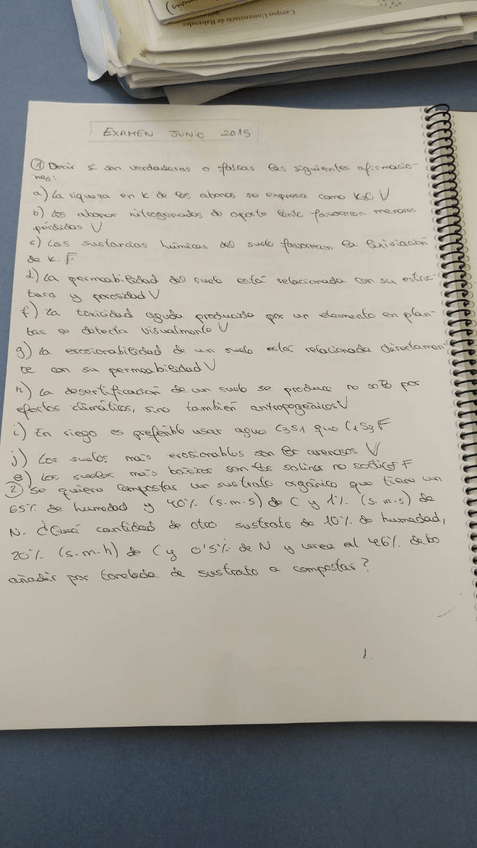 Campus Universitario de Materiales
EXAMEN JUNIO 2015
① Decir si son verdaderas o falsas las siguientes afirmacio-
nes:
a) La riqueza en K de los abonos se expresa como V
b) Los abonos nitrogenados de aporte lento favorecen menores
pérdidas V
c) Las sustancias húmicas del suelo favorecen la lixiviación
de K. F
d) La permeabilidad del suelo está relacionada con su estruc-
tura y porosidad V
f) La toxicidad aguda producida por un elemento en plan-
tas se detecta visualmente V
g) La erosionabilidad de un suelo está relacionada directamen-
te con su permeabilidad V
h) La desertificación de un suelo se produce no solo por
efectos climáticos, sino también antropogénicos V
i) En riego es preferible usar agua C3S1 que C1S3 F
j) Los suelos más erosionables son los arenosos V
e) Los suelos más básicos son los salinos no sódicos F
2) Se quiere compostar un sustrato orgánico que tiene un
65% de humedad y 40% (s.m.s) de C y 1% (s.m.s) de
N. ¿Qué cantidad de otro sustrato de 10% de humedad,
20% (s.m.h) de C y 0'5% de N y urea al 46% debo
añadir por tonelada de sustrato a compostar?
1